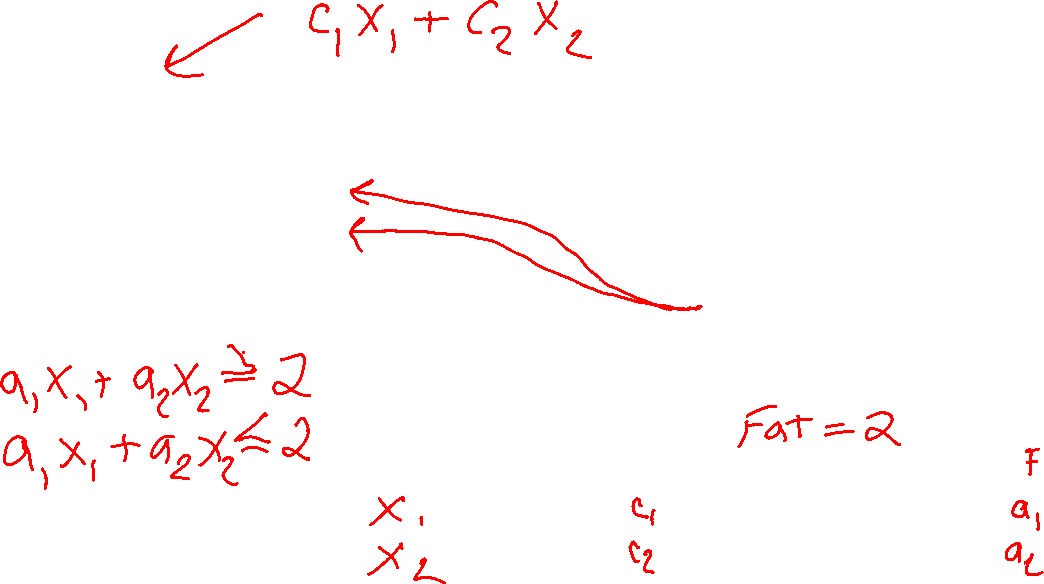 c₁x₁ + c₂x₂
a₁x₁ + a₂x₂ ≥ 2
a₁x₁ + a₂x₂ ≤ 2
Fat = 2
F
x₁ c₁ a₁
x₂ c₂ a₂